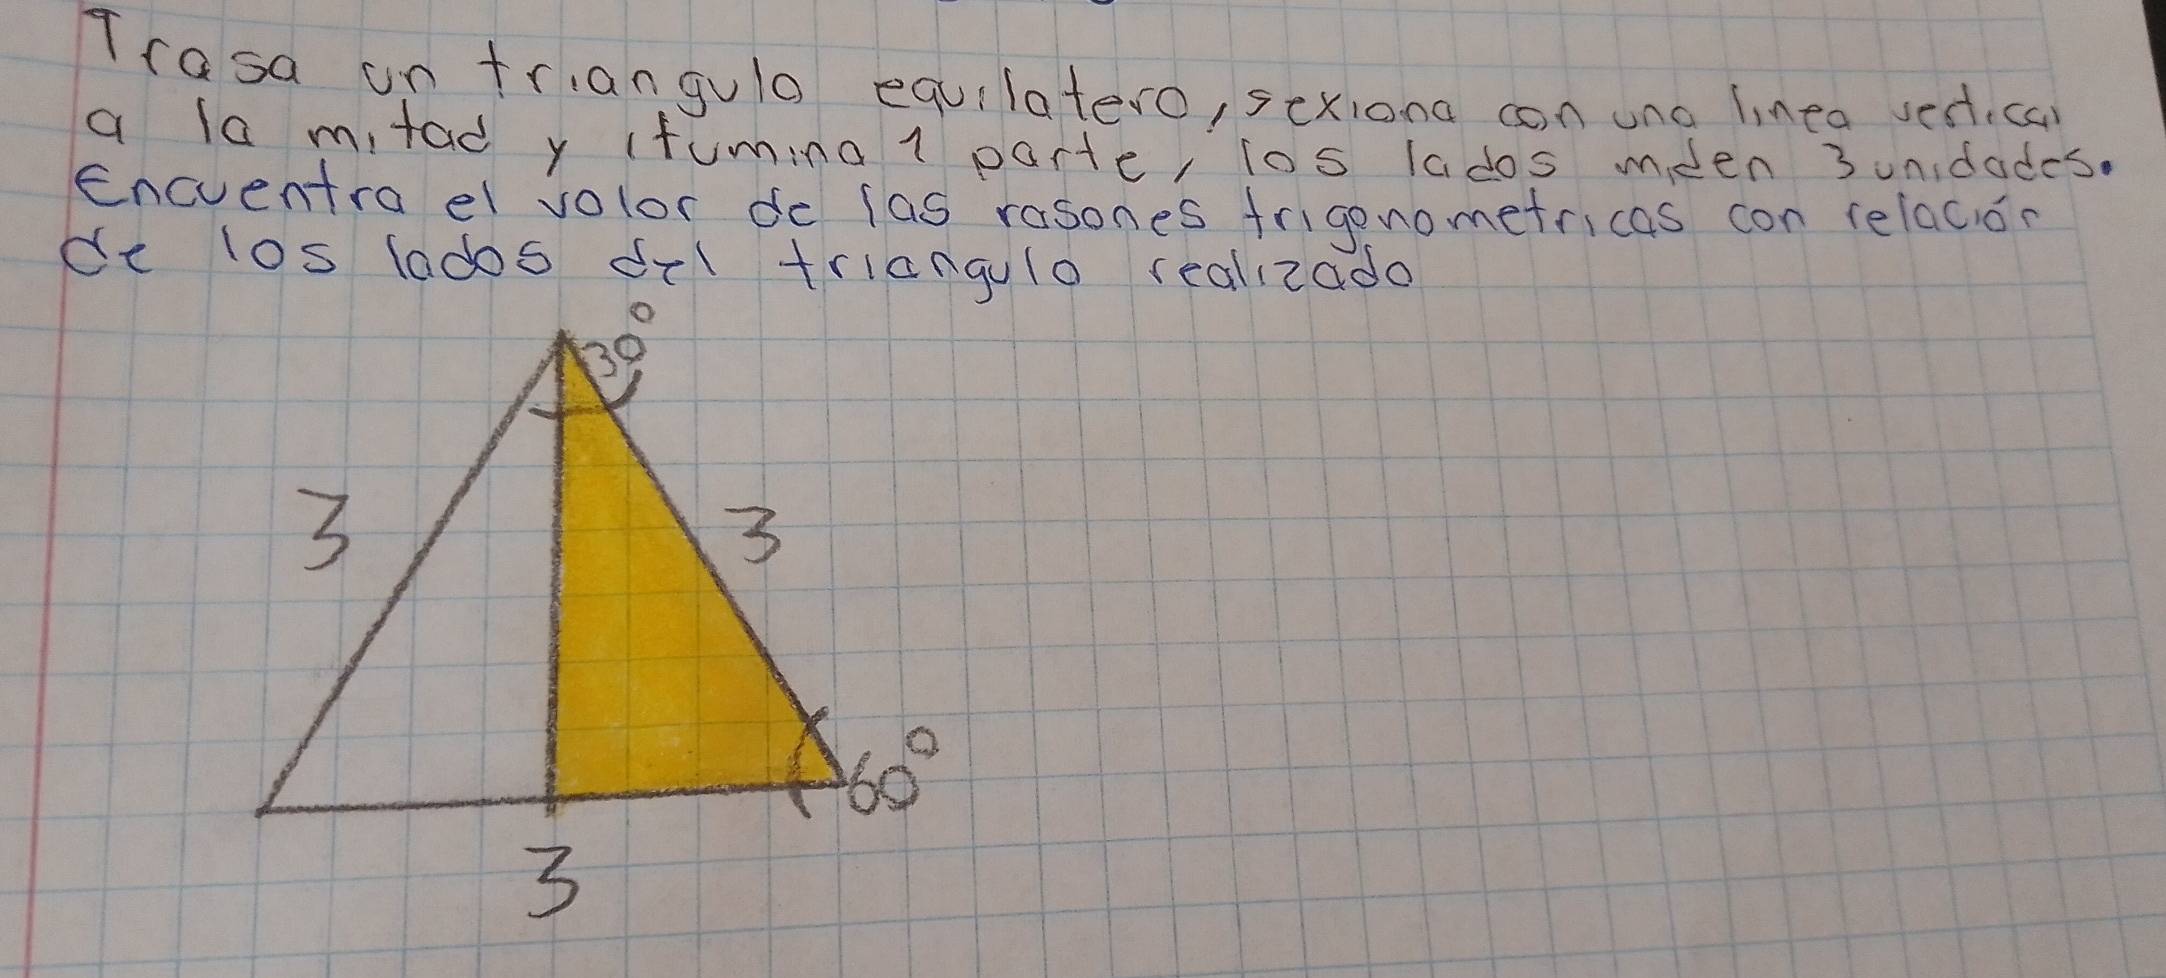 Trasa un triangulo equilatero, sexiona con una linea vertical
a la mitad y ilumina 1 parte, los lados miden 3 unidades.
Encuentra el valor de las rasones trigonometricas con relación
de los lados del triangulo realizado
30°
3
3
60°
3